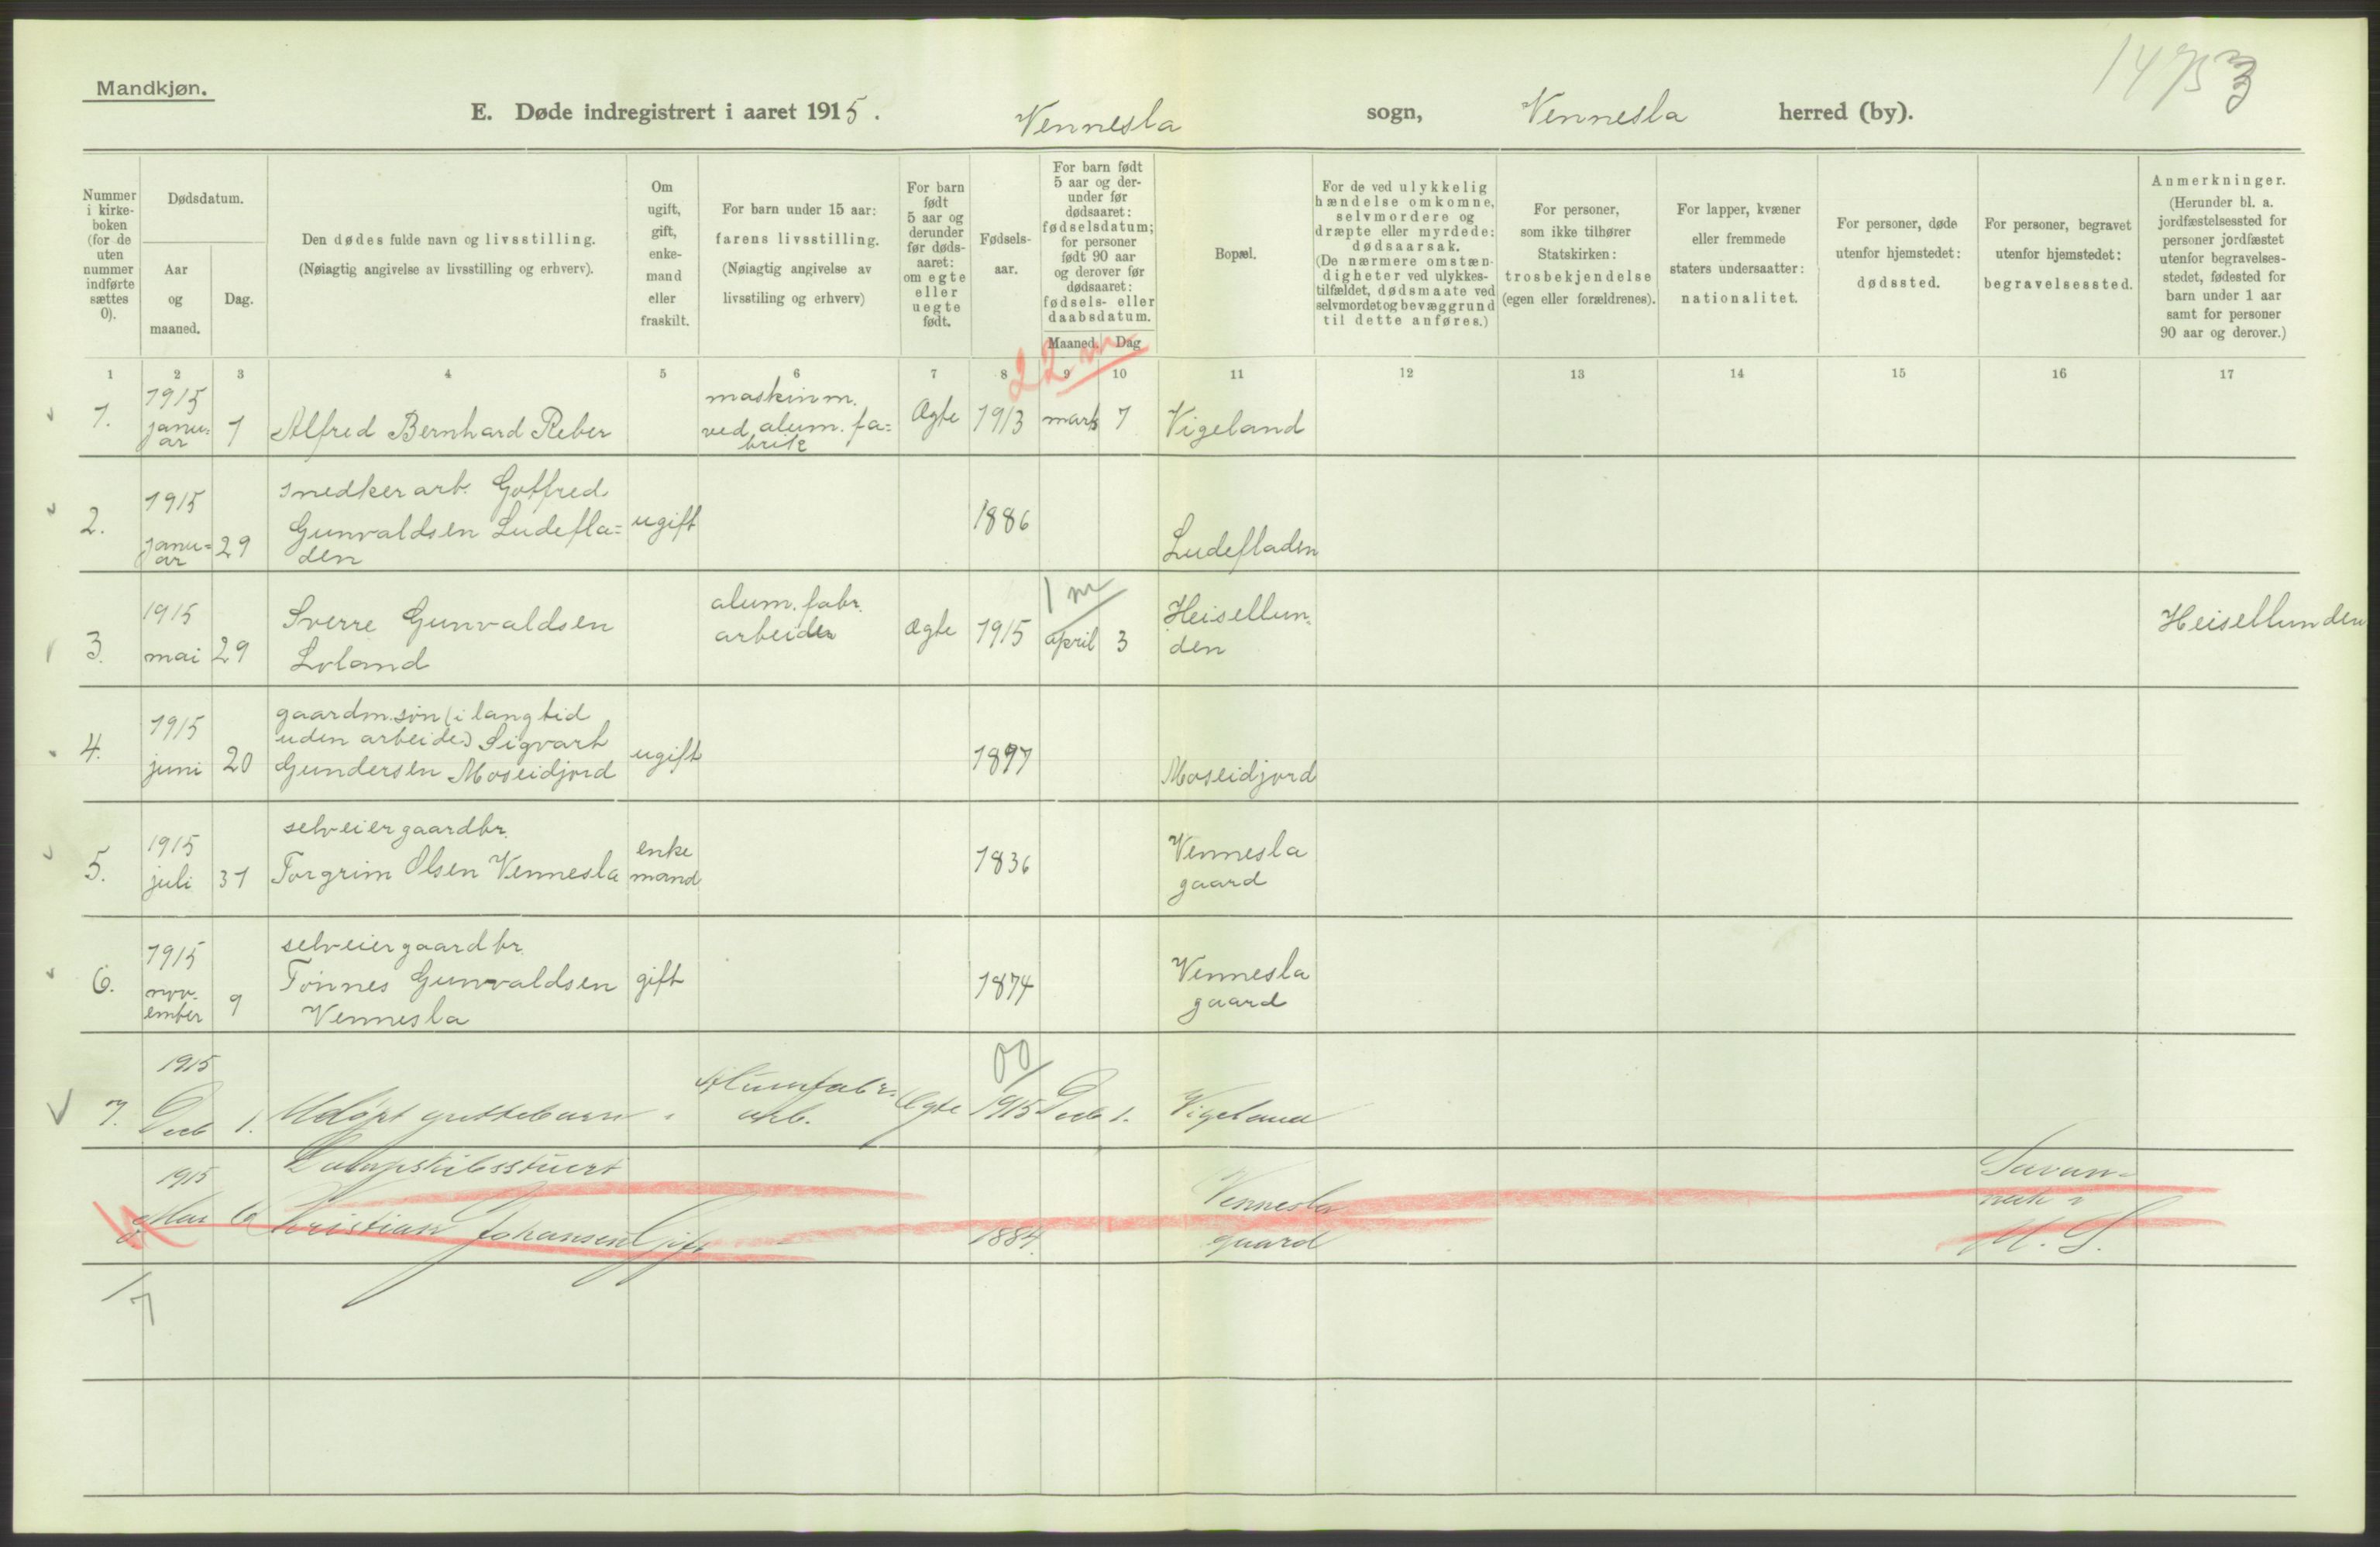 Mandkjøn.
14753
E. Døde indregistrert i aaret 1915. Vennesla sogn, Vennesla herred (by).
Nummer i kirke-boken (for de uten nummer indførte sættes 0).
Dødsdatum.
Aar og maaned.
Dag.
Den dødes fulde navn og livsstilling.
(Nøiagtig angivelse av livsstilling og erhverv).
Om ugift, gift, enke-mand eller fraskilt.
For barn under 15 aar:
farens livsstilling.
(Nøiagtig angivelse av
livsstiling og erhverv)
For barn født 5 aar og derunder før døds-aaret: om egte eller uegte født.
Fødsels-aar.
For barn født 5 aar og der-under før dødsaaret: fødselsdatum; for personer født 90 aar og derover før dødsaaret: fødsels- eller daabsdatum.
Maaned. Dag
Bopæl.
For de ved ulykkelig hændelse omkomne, selvmordere og dræpte eller myrdede: dødsaarsak. (De nærmere omstæn-digheter ved ulykkes-tilfældet, dødsmaate ved selvmordet og bevæggrund til dette anføres.)
For personer, som ikke tilhører Statskirken: trosbekjendelse (egen eller forældrenes).
For lapper, kvæner eller fremmede staters undersaatter: nationalitet.
For personer, døde utenfor hjemstedet: dødssted.
For personer, begravet utenfor hjemstedet: begravelsessted.
Anmerkninger. (Herunder bl. a. jordfæstelsessted for personer jordfæstet utenfor begravelses-stedet, fødested for barn under 1 aar samt for personer 90 aar og derover.)
1 2 3 4 5 6 7 8 9 10 11 12 13 14 15 16 17
22 m
1. 1915 janu=ar 1 Alfred Bernhard Reber maskinm. ved alum. fa=brik Ægte 1913 marts 7 Vigeland
2. 1915 janu=ar 29 snedkerarb. Gotfred
Gunvaldsen Ludefla=
den ugift 1886 Ludefladen
1 m
3. 1915 mai 29 Sverre Gunvaldsen
Loland alum. fabr. arbeider ægte 1915 april 3 Heisellun=den Heisellunden
4. 1915 juni 20 gaardm.søn (i lang tid
uden arbeide) Sigvart
Gundersen Moseidjord ugift 1897 Moseidjord
5. 1915 juli 31 selveier gaardbr.
Torgrim Olsen Vennesla enke mand 1836 Vennesla gaard
6. 1915 nov-ember 9 selveier gaardbr.
Tønnes Gunvaldsen
Vennesla gift 1874 Vennesla gaard
00
7. 1915 Decb 1. Udøpt guttebarn Alumfabr. arb. Ægte 1915 Decb 1. Vigeland
1915 Mai 6 Dampskibsstuert
Kristian Johansen Gift 1884. Vennesla gaard
7